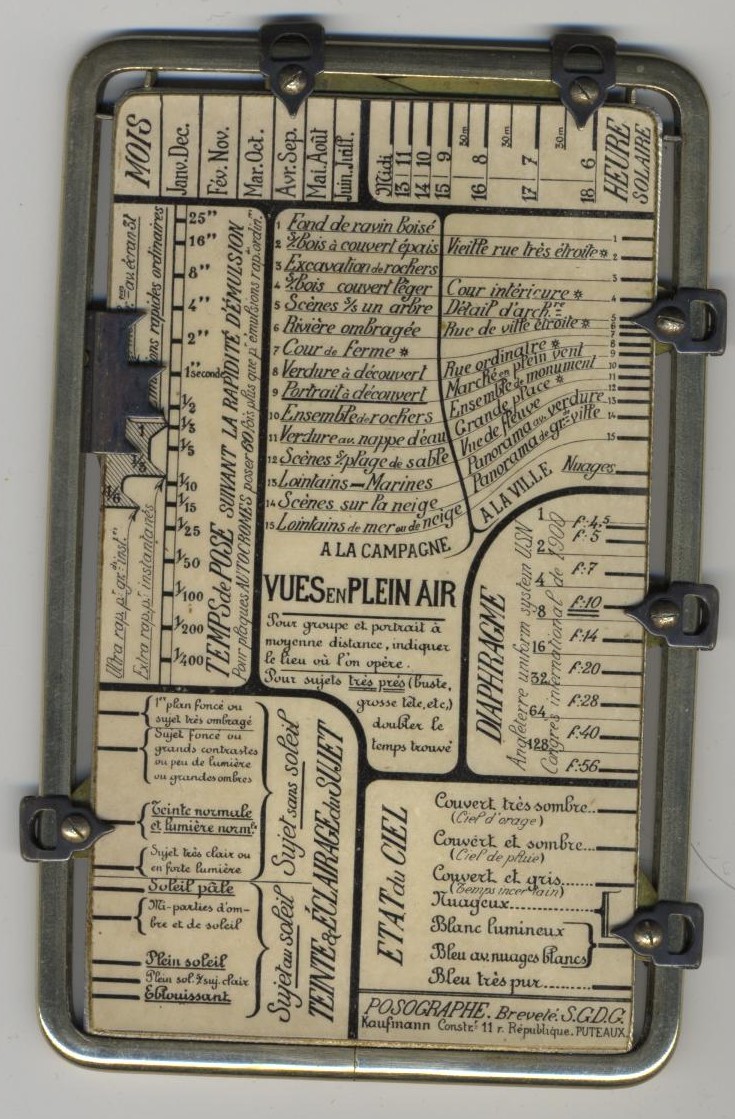 MOIS
Janv. Dec.
Fév. Nov.
Mar. Oct.
Avr. Sep.
Mai. Août
Juin. Juill.
Midi
13 11
14 10
15 9
30m
16 8
30m
17 7
30m
18 6
HEURE
SOLAIRE
au écran 3/
rapides ordinaires
25"
16"
8"
4"
2"
1" seconde
1/2
1/3
1/5
1/10
1/15
1/25
1/50
1/100
1/200
1/400
1
1/3
1/6
Extra rap. pr. instantanés
TEMPS de POSE SUIVANT LA RAPIDITÉ D'ÉMULSION
Pour plaques AUTOCHROMES poser 60 fois plus que pr. émulsions rap. ordinres
1 Fond de ravin boisé
2 S/bois à couvert épais
3 Excavation de rochers
4 S/bois couvert léger
5 Scènes s/s un arbre
6 Rivière ombragée
7 Cour de Ferme *
8 Verdure à découvert
9 Portrait à découvert
10 Ensemble de rochers
11 Verdure av. nappe d'eau
12 Scènes s/plage de sable
13 Lointains — Marines
14 Scènes sur la neige
15 Lointains de mer ou de neige
A LA CAMPAGNE
Vieille rue très étroite *
Cour intérieure *
Détail d'archre
Rue de ville étroite *
Rue ordinaire *
Marché en plein vent
Ensemble de monument
Grande place *
Vue de fleuve
Panorama av. verdure
Panorama de gr. ville
A LA VILLE
Nuages
1
2
3
4
5
6
7
8
9
10
11
12
13
14
15
VUES EN PLEIN AIR
Pour groupe et portrait à
moyenne distance, indiquer
le lieu où l'on opère.
Pour sujets très près (buste,
grosse tête, etc,)
doubler le
temps trouvé
DIAPHRAGME
Angleterre uniform system USN
Congrès international de 1900
1
2
4
8
16
32
64
128
F:4,5
F:5
F:7
F:10
F:14
F:20
F:28
F:40
F:56
1er plan foncé ou
sujet très ombragé
Sujet foncé ou
grands contrastes
ou peu de lumière
ou grandes ombres
Teinte normale
et lumière normle
Sujet très clair ou
en forte lumière
Sujet sans soleil
Soleil pâle
Mi-parties d'om-
bre et de soleil
Plein soleil
Plein sol. s/suj. clair
Eblouissant
Sujet au soleil
TEINTE & ÉCLAIRAGE du SUJET
ETAT du CIEL
Couvert très sombre...
(Ciel d'orage)
Couvert et sombre...
(Ciel de pluie)
Couvert et gris
(temps incertain)
Nuageux
Blanc lumineux
Bleu av. nuages blancs
Bleu très pur
POSOGRAPHE. Breveté S.G.D.G.
Kaufmann Constr. 11 r. République. PUTEAUX